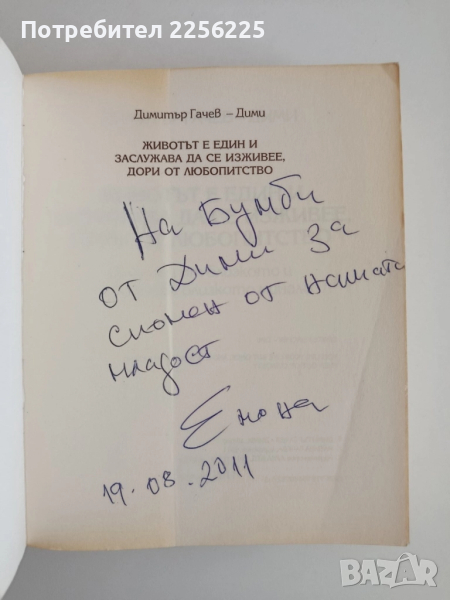 Потребител 2256225
Димитър Гачев – Дими
ЖИВОТЪТ Е ЕДИН И
ЗАСЛУЖАВА ДА СЕ ИЗЖИВЕЕ,
ДОРИ ОТ ЛЮБОПИТСТВО
На Бумби
от Дими за
спомен от нашата
младост
19.08.2011
BAZAR